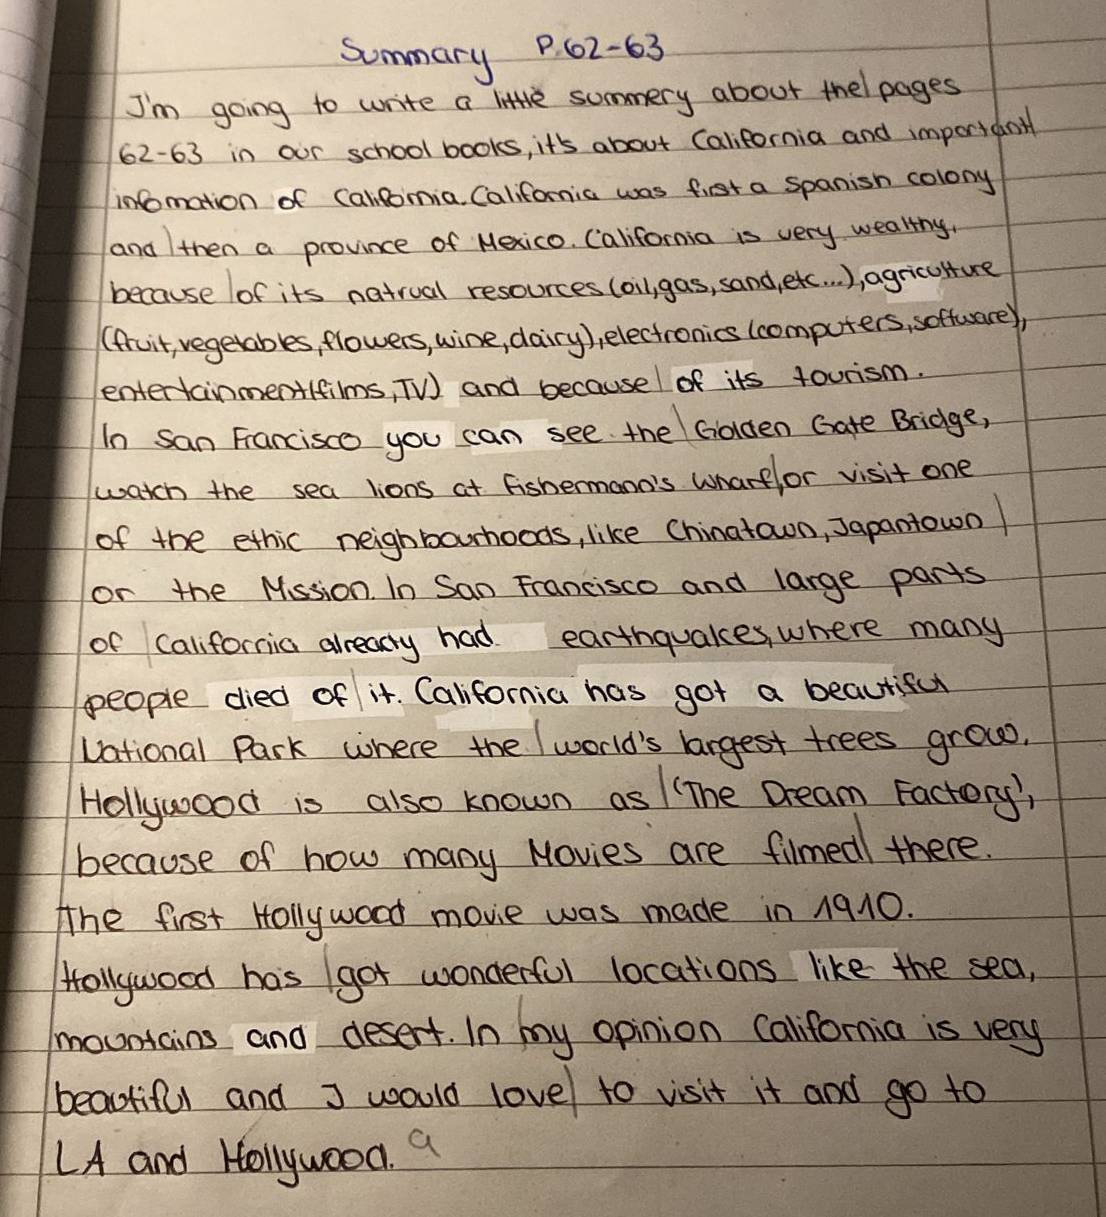 Summary P.62-63
I'm going to write a little summery about the pages
62-63 in our school books, it's about California and important
infomation of California. California was first a Spanish colony
and then a province of Mexico. California is very wealthy,
because of its natrual resources (oil, gas, sand, etc...), agriculture
(fruit, vegetables, flowers, wine, dairy), electronics (computers, software),
entertainment (films, TV) and because of its tourism.
In San Francisco you can see the Golden Gate Bridge,
watch the sea lions at Fishermann's Wharf, or visit one
of the ethic neighbourhoods, like Chinatown, Japantown
or the Mission. In San Francisco and large parts
of California already had earthquakes, where many
people died of it. California has got a beautiful
National Park where the world's largest trees grow.
Hollywood is also known as 'The Dream Factory',
because of how many Movies are filmed there.
The first Hollywood movie was made in 1910.
Hollywood has got wonderful locations like the sea,
mountains and desert. In my opinion California is very
beautiful and I would love to visit it and go to
LA and Hollywood. a